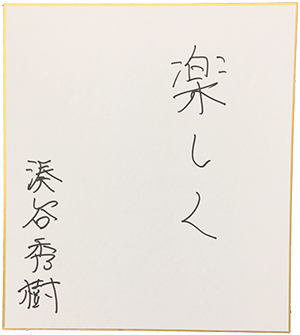 楽しく
湊谷秀樹